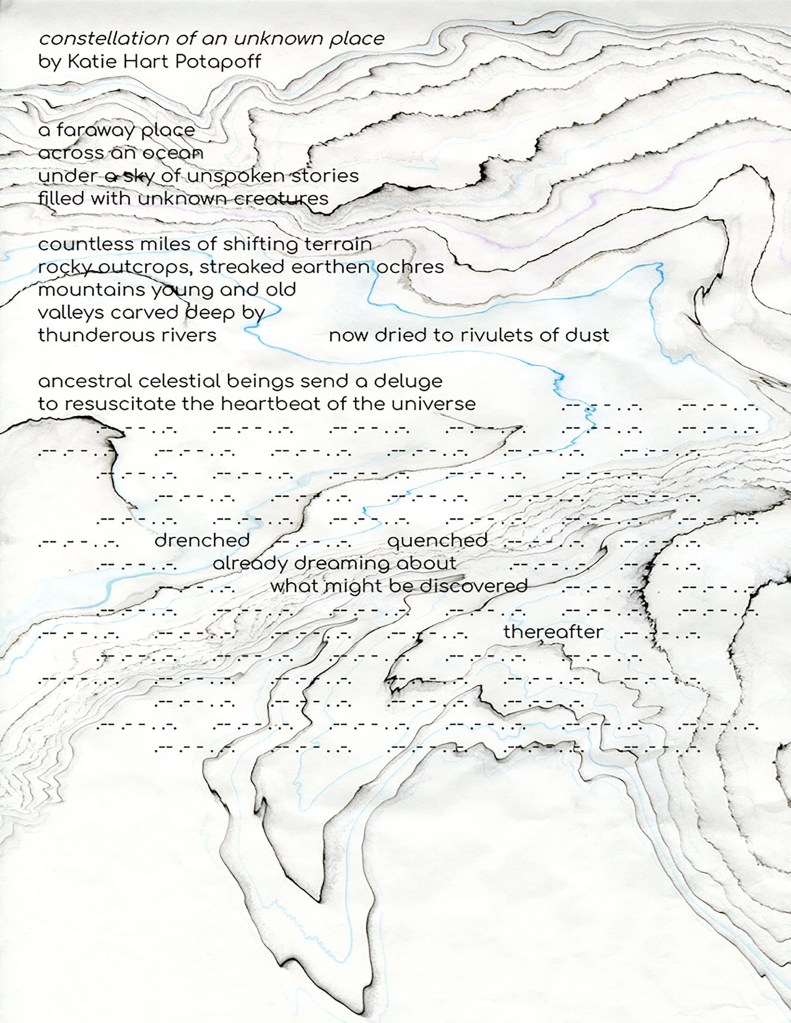 constellation of an unknown place
by Katie Hart Potapoff
a faraway place
across an ocean
under a sky of unspoken stories
filled with unknown creatures
countless miles of shifting terrain
rocky outcrops, streaked earthen ochres
mountains young and old
valleys carved deep by
thunderous rivers now dried to rivulets of dust
ancestral celestial beings send a deluge
to resuscitate the heartbeat of the universe .-- .- - . .-. .-- .- - . .-.
.-- .- - . .-. .-- .- - . .-. .-- .- - . .-. .-- .- - . .-. .-- .- - . .-. .-- .- - . .-.
.-- .- - . .-. .-- .- - . .-. .-- .- - . .-. .-- .- - . .-. .-- .- - . .-. .-- .- - . .-.
.-- .- - . .-. .-- .- - . .-. .-- .- - . .-. .-- .- - . .-. .-- .- - . .-. .-- .- - . .-.
.-- .- - . .-. .-- .- - . .-. .-- .- - . .-. .-- .- - . .-. .-- .- - . .-.
.-- .- - . .-. .-- .- - . .-. .-- .- - . .-. .-- .- - . .-. .-- .- - . .-. .-- .- - . .-.
.-- .- - . .-. drenched .-- .- - . .-. quenched .-- .- - . .-. .-- .- - . .-.
.-- .- - . .-. already dreaming about .-- .- - . .-. .-- .- - . .-.
.-- .- - . .-. what might be discovered .-- .- - . .-. .-- .- - . .-.
.-- .- - . .-. .-- .- - . .-. .-- .- - . .-. .-- .- - . .-. .-- .- - . .-. .-- .- - . .-.
.-- .- - . .-. .-- .- - . .-. .-- .- - . .-. .-- .- - . .-. thereafter .-- .- - . .-.
.-- .- - . .-. .-- .- - . .-. .-- .- - . .-. .-- .- - . .-. .-- .- - . .-. .-- .- - . .-.
.-- .- - . .-. .-- .- - . .-. .-- .- - . .-. .-- .- - . .-. .-- .- - . .-. .-- .- - . .-.
.-- .- - . .-. .-- .- - . .-. .-- .- - . .-. .-- .- - . .-. .-- .- - . .-.
.-- .- - . .-. .-- .- - . .-. .-- .- - . .-. .-- .- - . .-. .-- .- - . .-. .-- .- - . .-.
.-- .- - . .-. .-- .- - . .-. .-- .- - . .-. .-- .- - . .-. .-- .- - . .-.